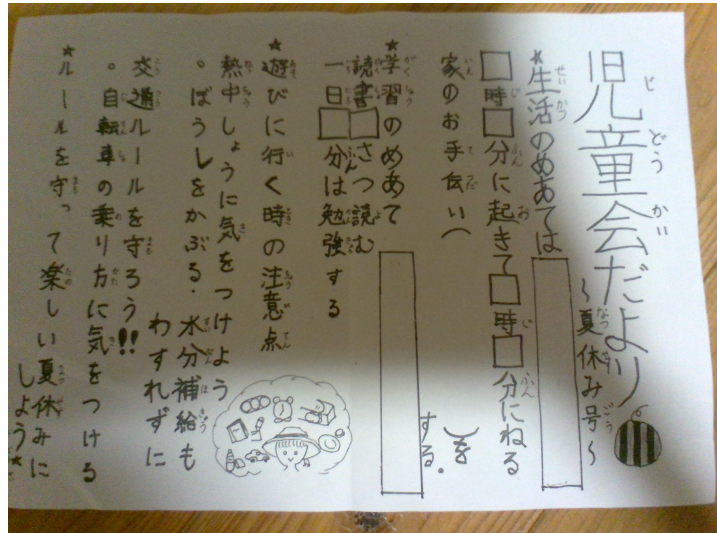 児童会だより
～夏休み号～
*生活のめあては
□時□分に起きて□時□分にねる
家のお手伝い（　）をする.
*学習のめあて
読書□さつ読む
一日□分は勉強する
*遊びに行く時の注意点
熱中しょうに気をつけよう
。ぼうしをかぶる・水分補給も
わすれずに
交通ルールを守ろう!!
。自転車の乗り方に気をつける
*ルールを守って楽しい夏休みに
しよう*